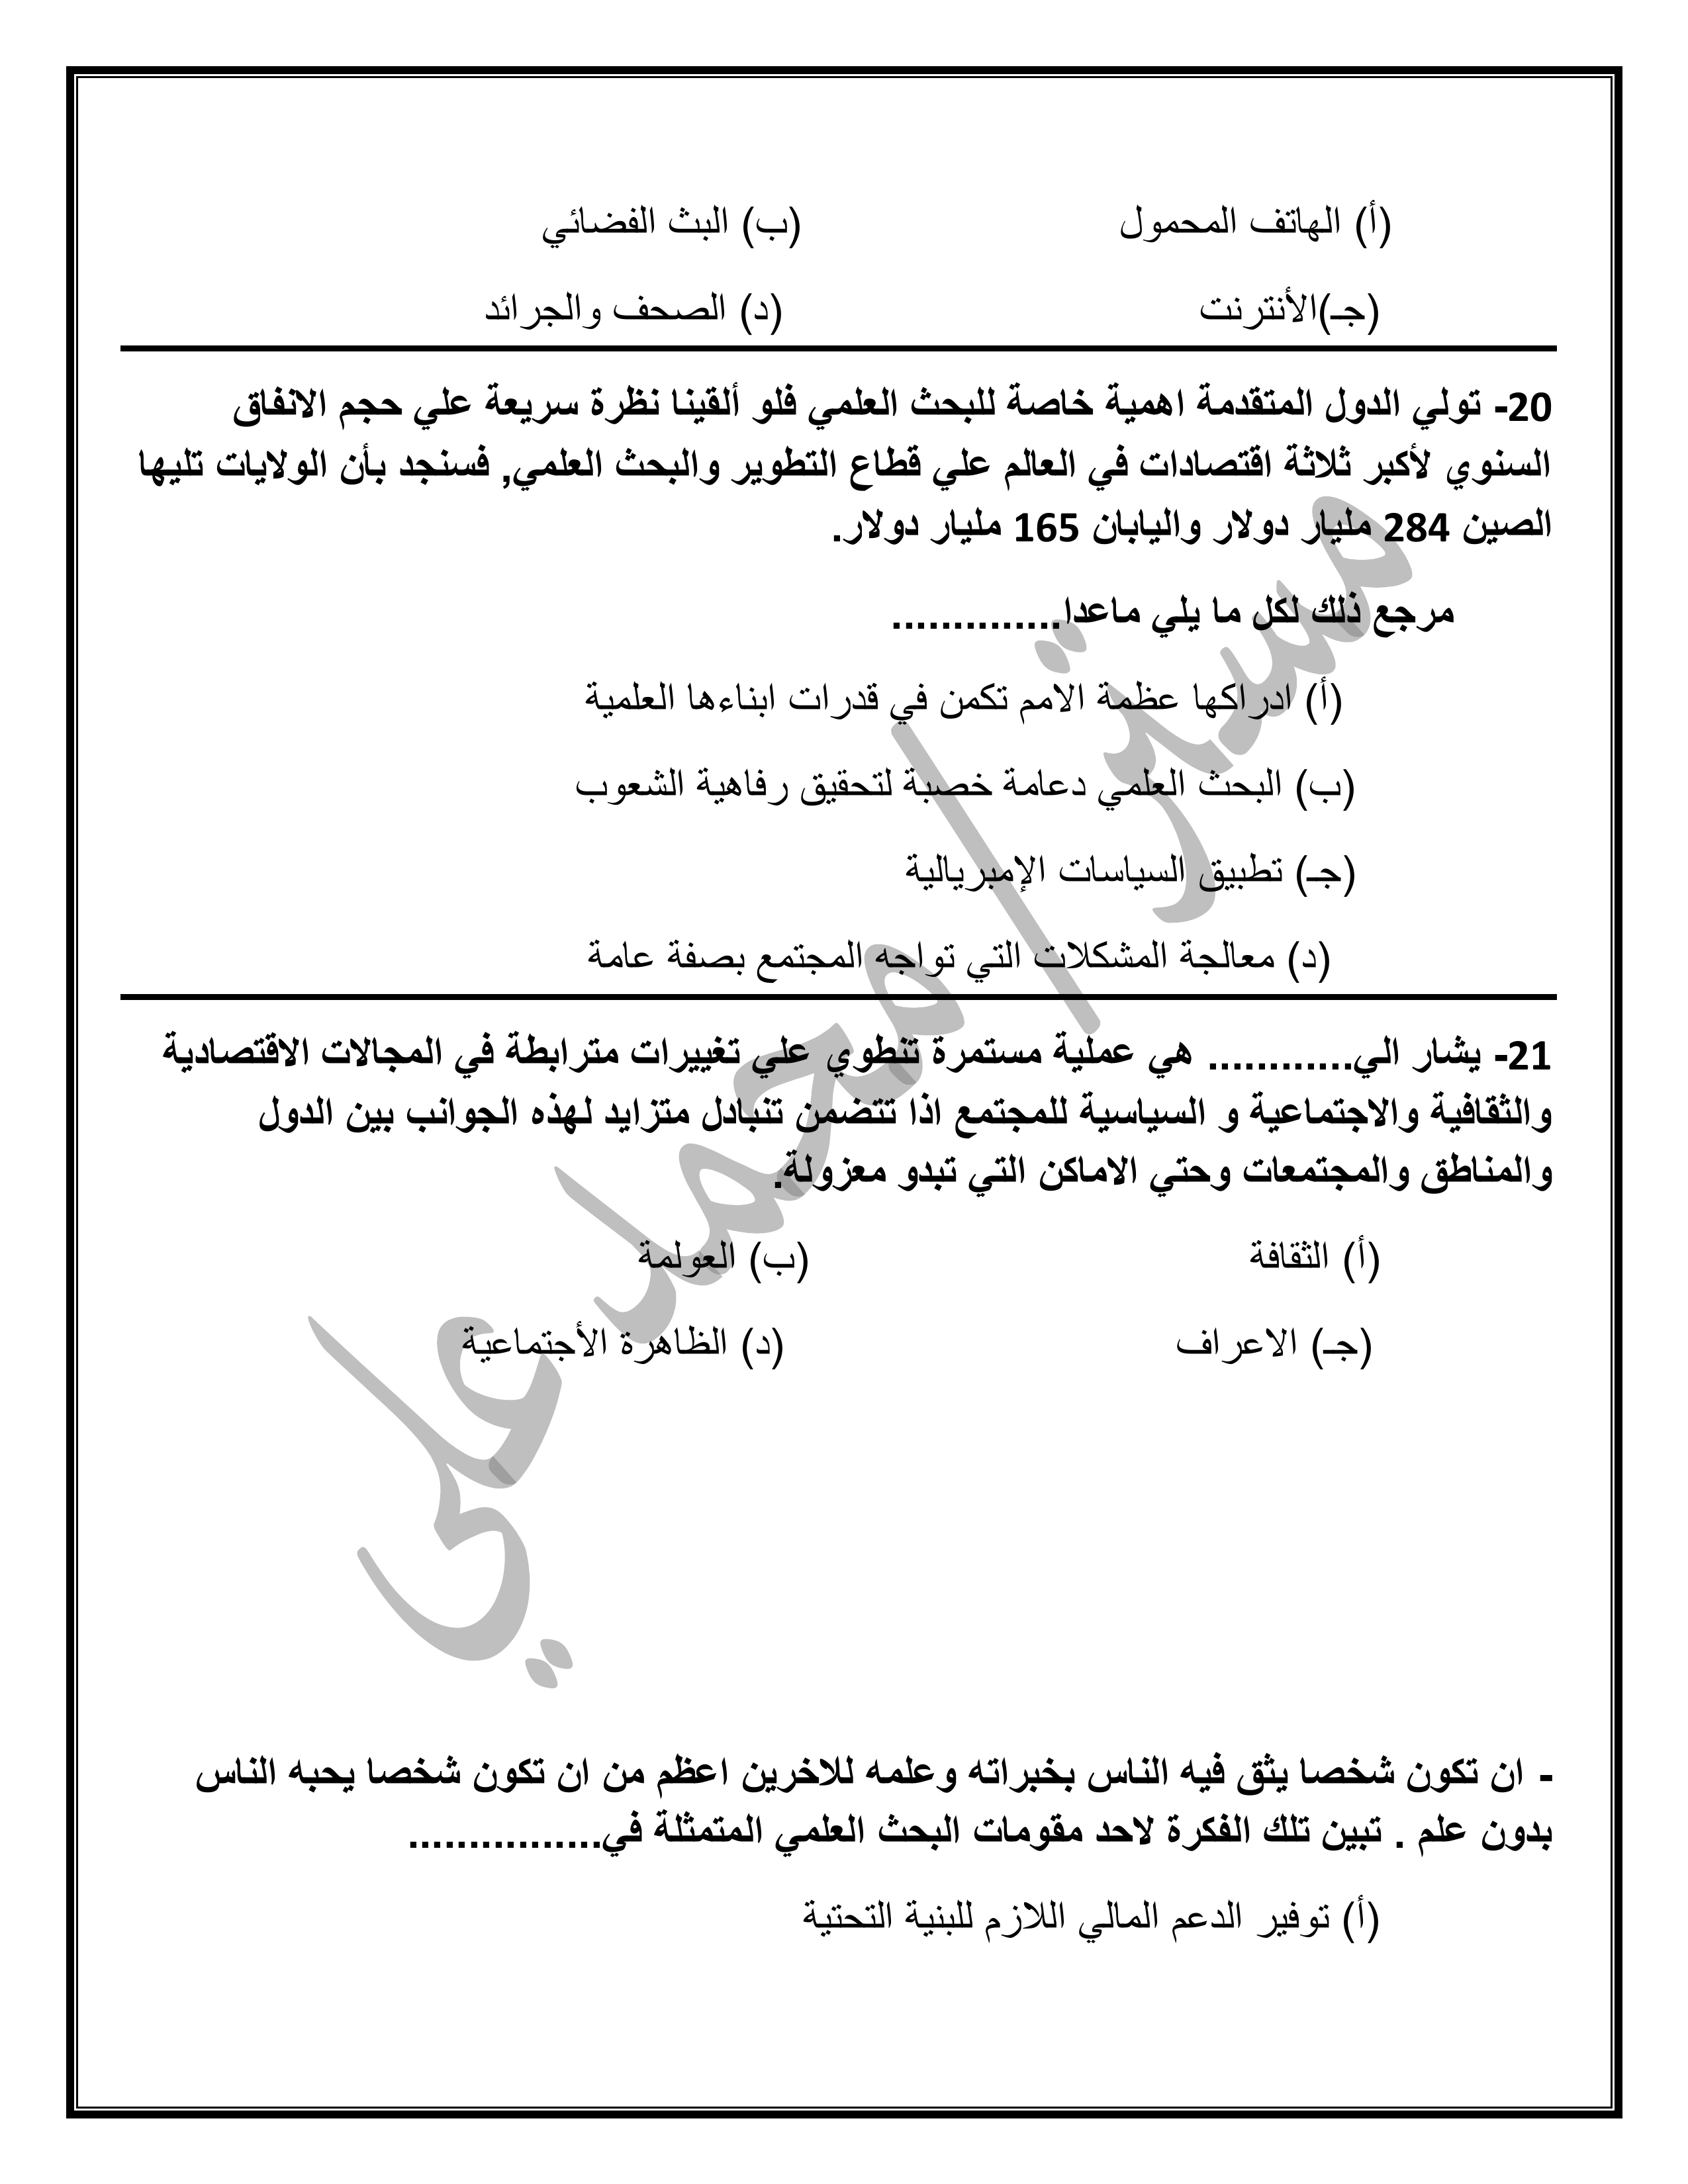 (أ) الهاتف المحمول (ب) البث الفضائي
(جـ)الأنترنت (د) الصحف والجرائد
20- تولي الدول المتقدمة اهمية خاصة للبحث العلمي فلو ألقينا نظرة سريعة علي حجم الانفاق
السنوي لأكبر ثلاثة اقتصادات في العالم علي قطاع التطوير والبحث العلمي, فسنجد بأن الولايات تليها
الصين 284 مليار دولار واليابان 165 مليار دولار.
مرجع ذلك لكل ما يلي ماعدا..............
(أ) ادراكها عظمة الامم تكمن في قدرات ابناءها العلمية
(ب) البحث العلمي دعامة خصبة لتحقيق رفاهية الشعوب
(جـ) تطبيق السياسات الإمبريالية
(د) معالجة المشكلات التي تواجه المجتمع بصفة عامة
21- يشار الي............ هي عملية مستمرة تنطوي علي تغييرات مترابطة في المجالات الاقتصادية
والثقافية والاجتماعية و السياسية للمجتمع اذا تتضمن تنبادل متزايد لهذه الجوانب بين الدول
والمناطق والمجتمعات وحتي الاماكن التي تبدو معزولة.
(أ) الثقافة (ب) العولمة
(جـ) الاعراف (د) الظاهرة الأجتماعية
- ان تكون شخصا يثق فيه الناس بخبراته وعلمه للاخرين اعظم من ان تكون شخصا يحبه الناس
بدون علم . تبين تلك الفكرة لاحد مقومات البحث العلمي المتمثلة في................
(أ) توفير الدعم المالي اللازم للبنية التحتية
مستر/ محمد علي